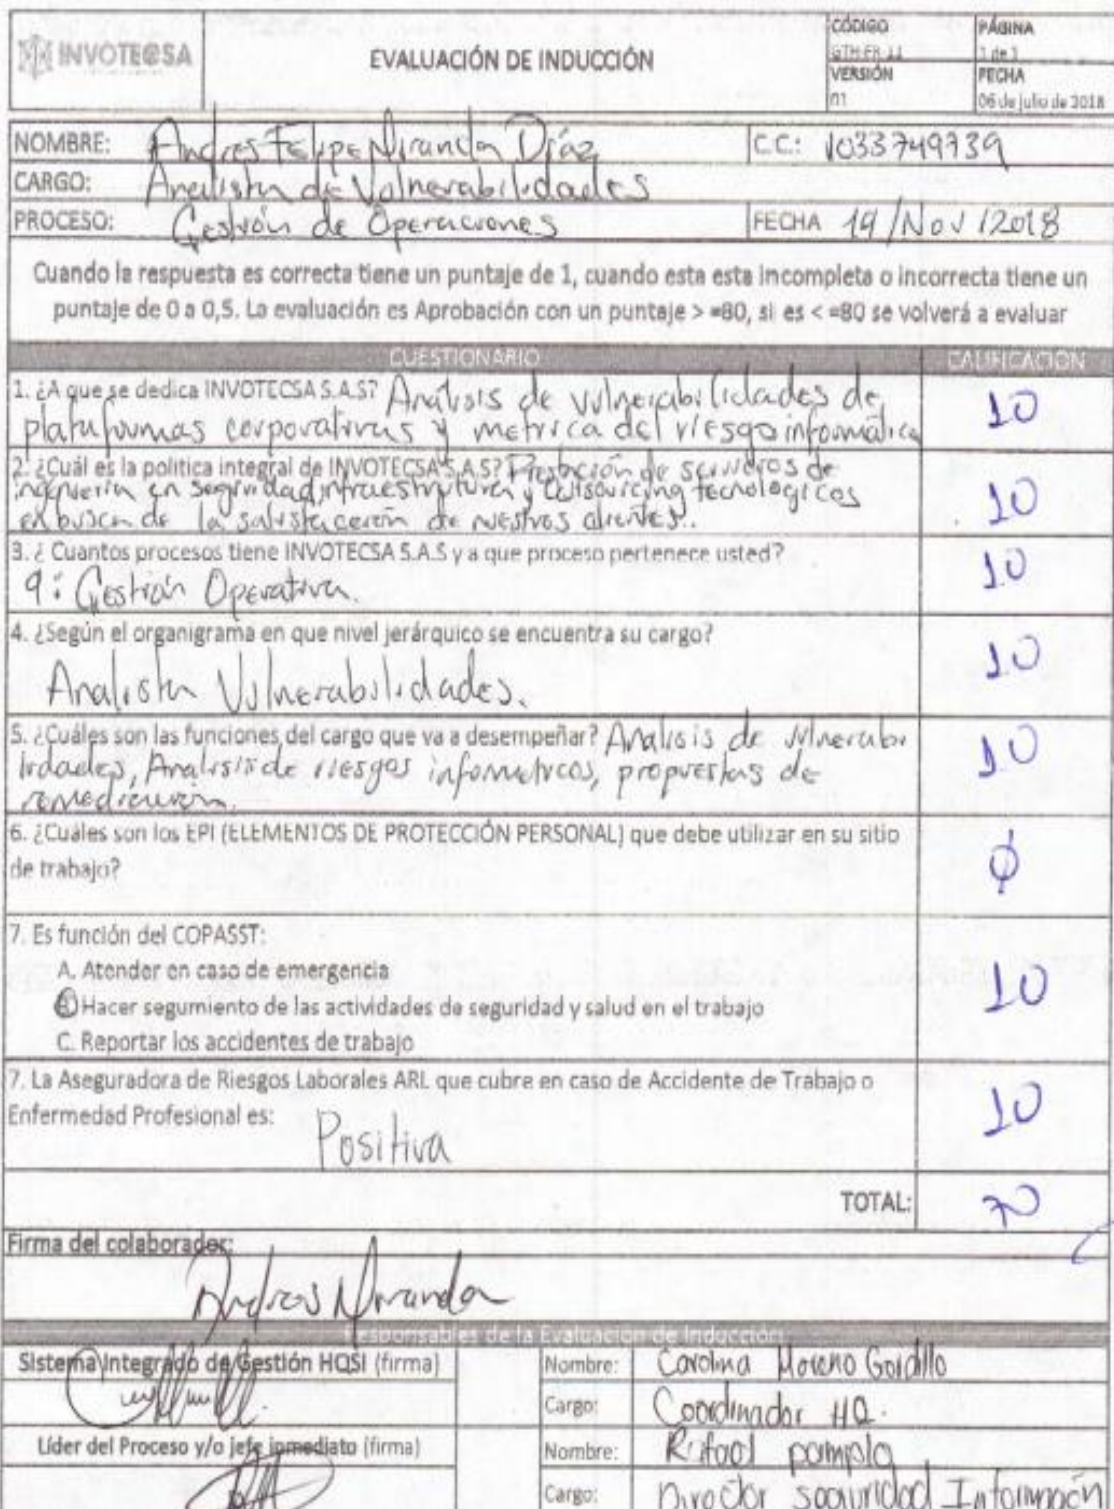 INVOTECSA
EVALUACIÓN DE INDUCCIÓN
CÓDIGO
GTH-FR-11
PÁGINA
1 de 1
VERSIÓN
01
FECHA
06 de julio de 2018
NOMBRE: Andres Felipe Miranda Díaz
C.C.: 1033749739
CARGO: Analista de Vulnerabilidades
PROCESO: Gestión de Operaciones
FECHA 14/Nov/2018
Cuando la respuesta es correcta tiene un puntaje de 1, cuando esta esta incompleta o incorrecta tiene un
puntaje de 0 a 0,5. La evaluación es Aprobación con un puntaje > =80, si es < =80 se volverá a evaluar
CUESTIONARIO
CALIFICACIÓN
1. ¿A que se dedica INVOTECSA S.A.S? Analisis de vulnerabilidades de
plataformas corporativas y metrica del riesgo informatica
10
2. ¿Cuál es la politica integral de INVOTECSA S.A.S? Prestación de servicios de
ingenieria en seguridad, infraestrutura y outsourcing tecnologicos
en busca de la satisfaceción de nuestros clientes.
10
3. ¿ Cuantos procesos tiene INVOTECSA S.A.S y a que proceso pertenece usted?
9: Gestión Operativa.
10
4. ¿Según el organigrama en que nivel jerárquico se encuentra su cargo?
Analista Vulnerabilidades.
10
5. ¿Cuáles son las funciones del cargo que va a desempeñar? Analisis de vulnerabi
lidades, Analisis de riesgos informaticos, propuestas de
remediación.
10
6. ¿Cuáles son los EPI (ELEMENTOS DE PROTECCIÓN PERSONAL) que debe utilizar en su sitio
de trabajo?
0
7. Es función del COPASST:
A. Atender en caso de emergencia
B. Hacer segumiento de las actividades de seguridad y salud en el trabajo
C. Reportar los accidentes de trabajo
10
7. La Aseguradora de Riesgos Laborales ARL que cubre en caso de Accidente de Trabajo o
Enfermedad Profesional es:
Positiva
10
TOTAL: 70
Firma del colaborador:
Andres Miranda
Responsables de la Evaluación de Inducción
Sistema Integrado de Gestión HQSI (firma)
Nombre: Carolina Moreno Gordillo
Cargo: Coordinador HQ.
Líder del Proceso y/o jefe inmediato (firma)
Nombre: Rafael pampla
Cargo: Director seguridad Información